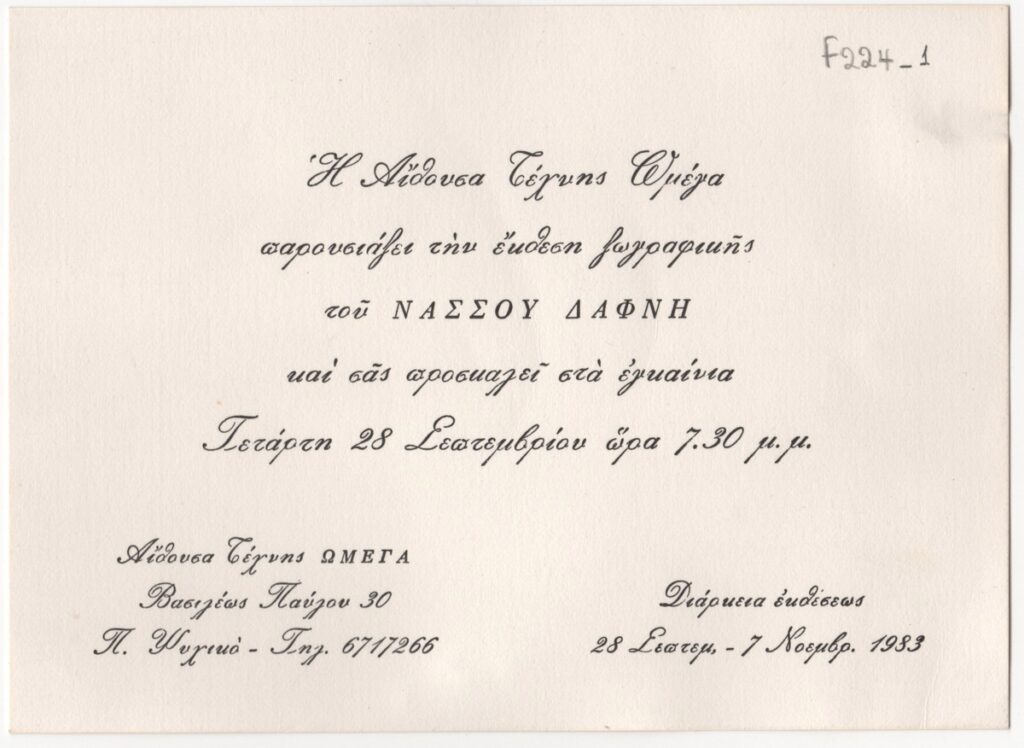 F224-1
Ἡ Αἴθουσα Τέχνης Ὠμέγα
παρουσιάζει τὴν ἔκθεση ζωγραφικῆς
τοῦ ΝΑΣΣΟΥ ΔΑΦΝΗ
καί σᾶς προσκαλεῖ στὰ ἐγκαίνια
Τετάρτη 28 Σεπτεμβρίου ὥρα 7.30 μ.μ.
Αἴθουσα Τέχνης ΩΜΕΓΑ
Βασιλέως Παύλου 30
Π. Ψυχικὸ - Τηλ. 6717266
Διάρκεια ἐκθέσεως
28 Σεπτεμ. - 7 Νοεμβρ. 1983